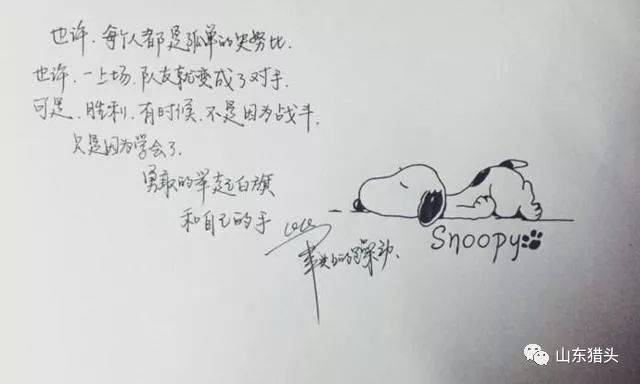 也许.每个人都是孤单的史努比.
也许.一上场.队友就变成了对手.
可是.胜利.有时候.不是因为战斗.
只是因为学会了.
勇敢的举起白旗
和自己的手
Snoopy
山东猎头